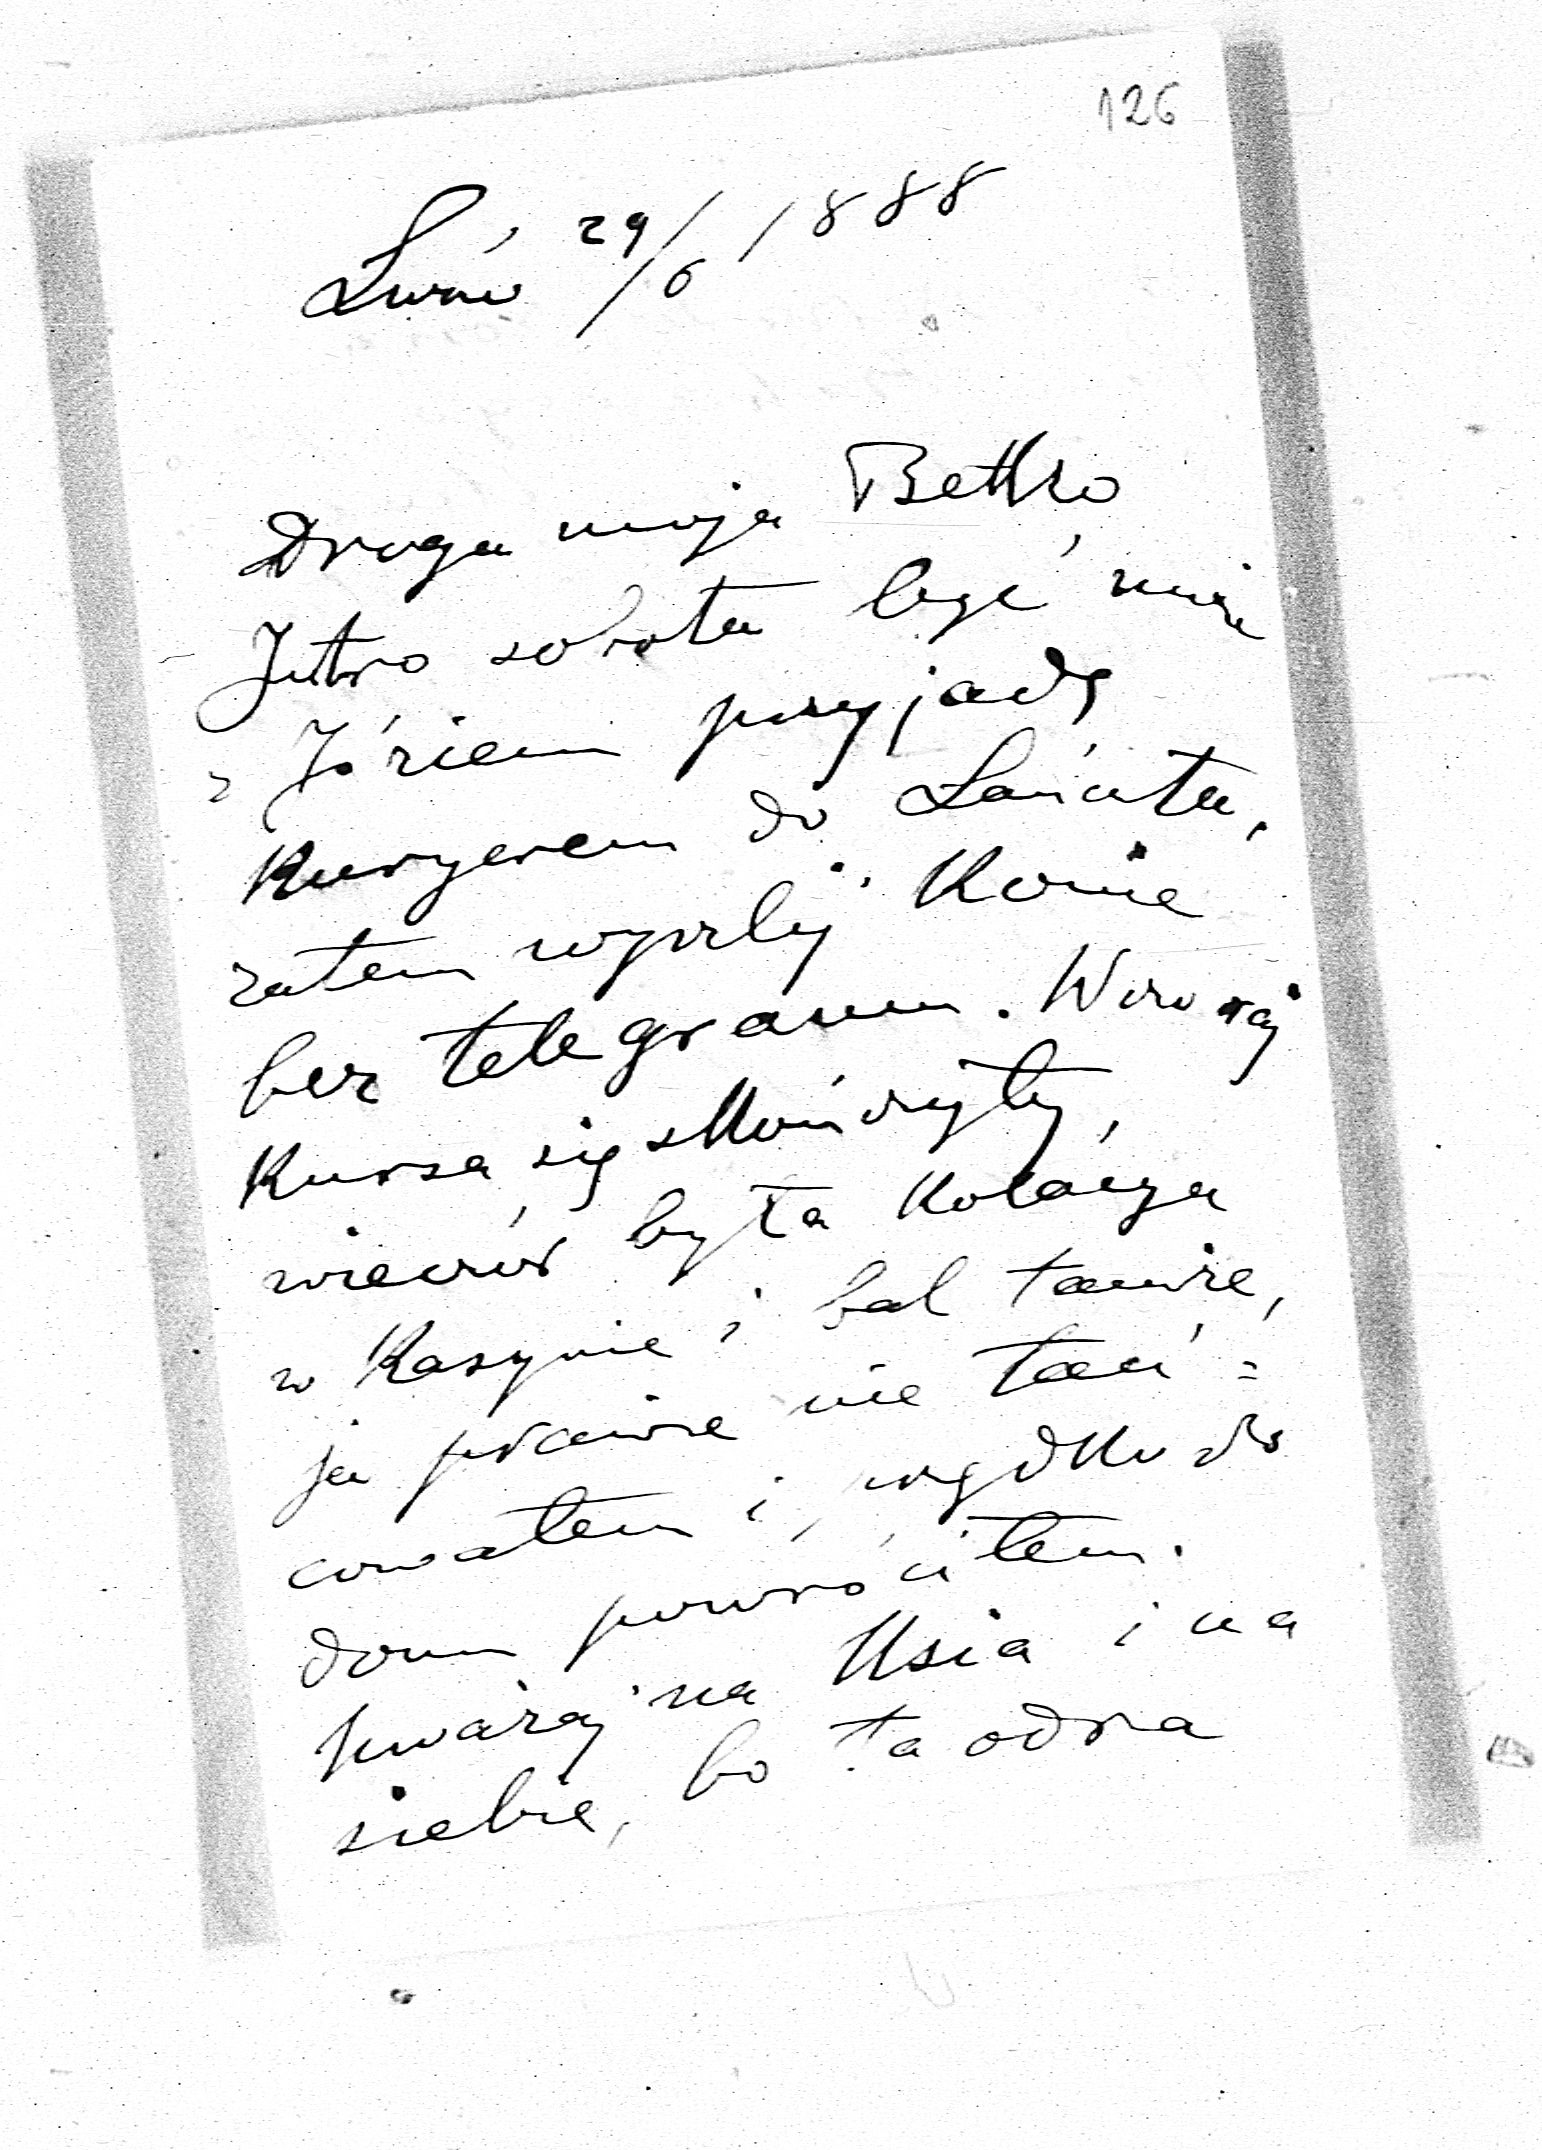 126
Lwów 29/6 1888
Droga moja Betko
Jutro sobota być może
z Józiem przyjadę
Kuryerem do Łańcuta,
zatem wyszlij Konie
bez telegramu. Wczoraj
Kursa się skończyły,
wieczór była Kolacya
w Kasynie i bal tamże,
ja prawie nie tań=
cowałem i prędko do
domu powróciłem.
Uważaj na Usia i na
siebie, bo ta odra